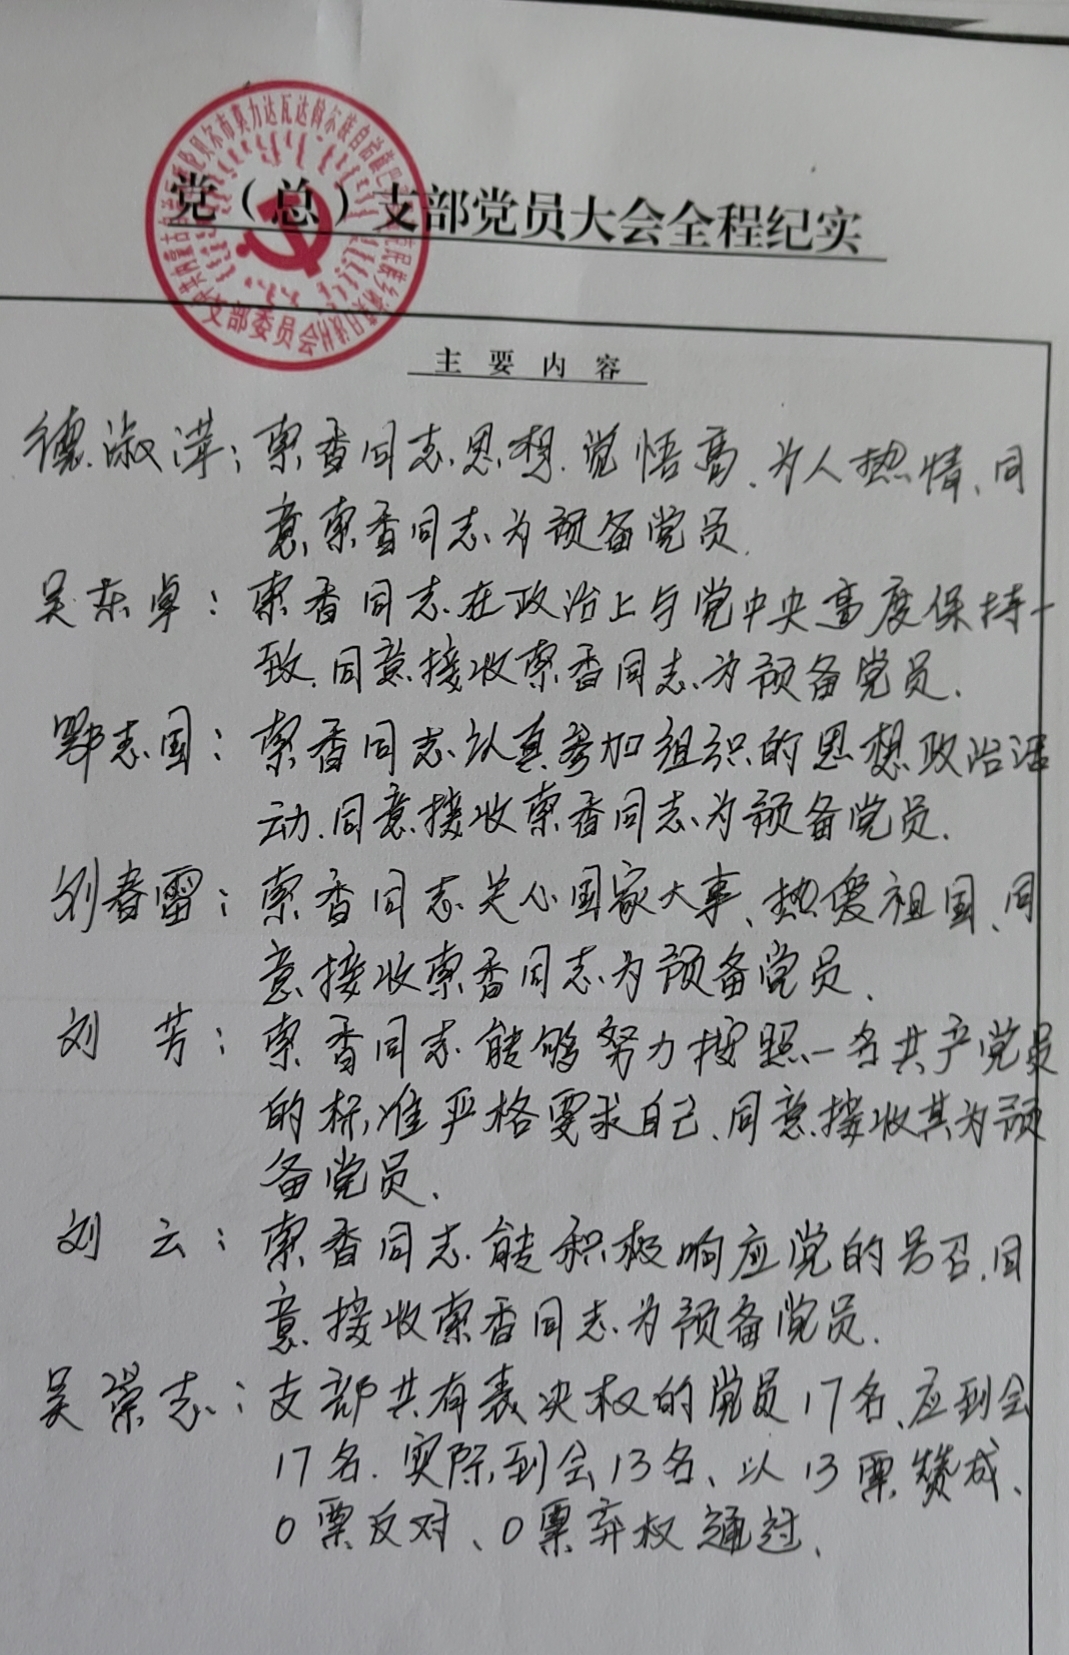 党（总）支部党员大会全程纪实
支部委员会
主要内容
德淑萍：索香同志思想觉悟高、为人热情、同
意索香同志为预备党员.
吴东卓：索香同志在政治上与党中央高度保持一
致.同意接收索香同志为预备党员.
鄂志国：索香同志认真参加组织的思想政治活
动.同意接收索香同志为预备党员.
刘春雷：索香同志关心国家大事、热爱祖国、同
意接收索香同志为预备党员、
刘芳：索香同志能够努力按照一名共产党员
的标准严格要求自己、同意接收其为预
备党员、
刘云：索香同志能积极响应党的号召.同
意接收索香同志为预备党员.
吴荣志：支部共有表决权的党员17名、应到会
17名.实际到会13名、以13票赞成、
0票反对、0票弃权通过、